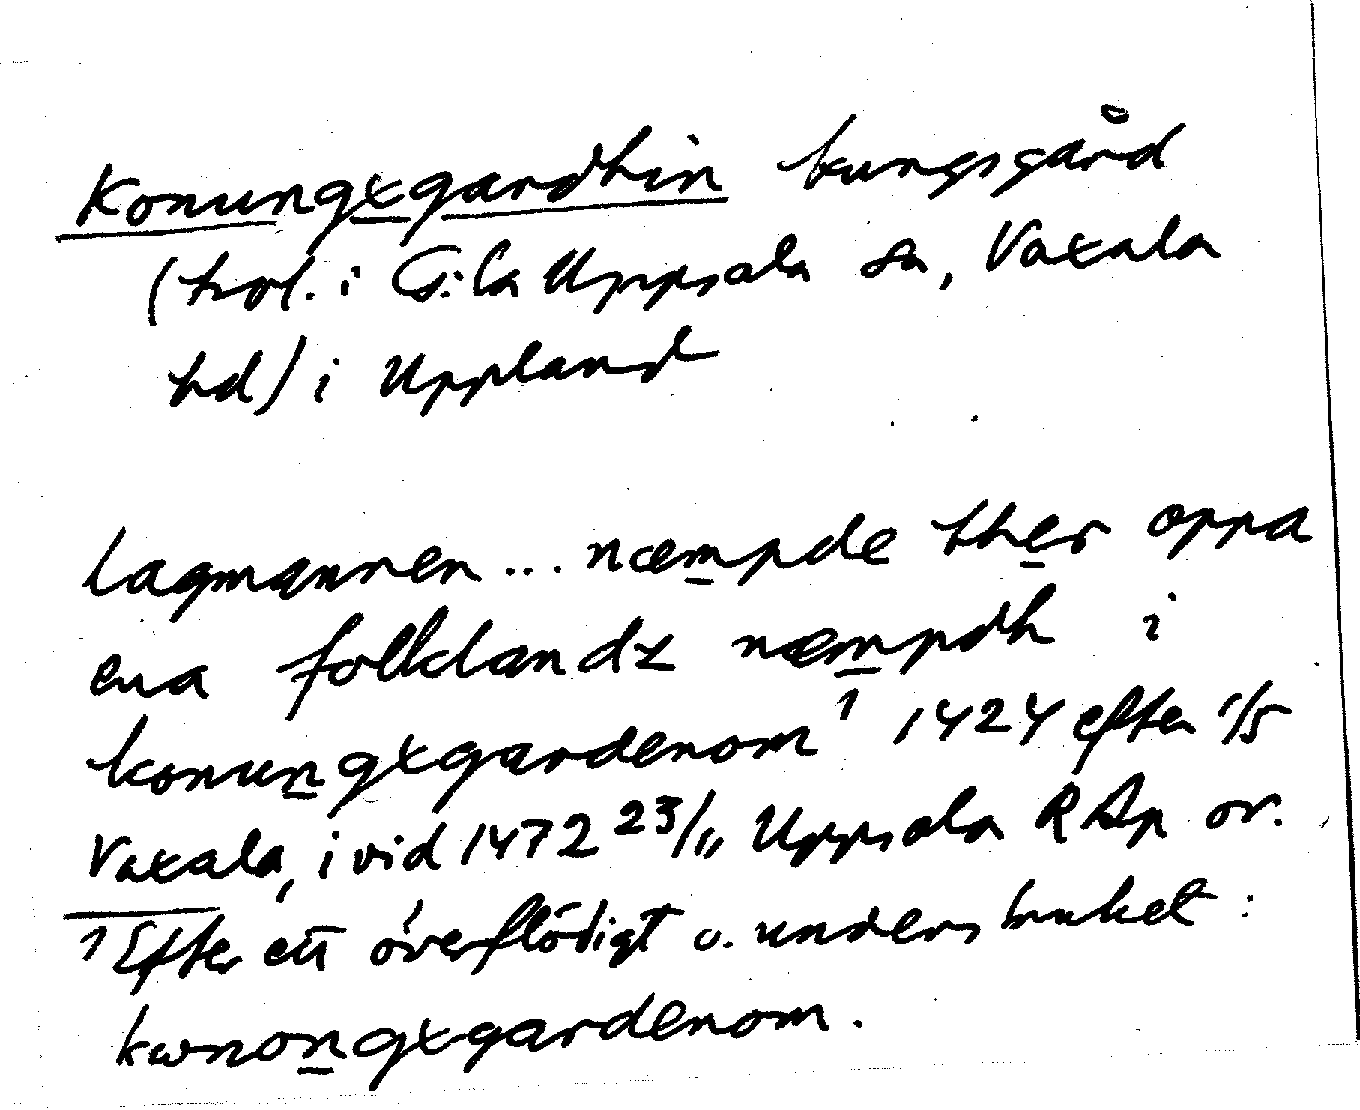 Konungxgardhin kungsgård
(trol. i G:la Uppsala sn, Vaxala
hd) i Uppland
lagmannen ... næmpde ther oppa
ena folklandz næmpdh i
konungxgardenom¹ 1424 efter 1/5
Vaxala, i vid 1472 23/11 Uppsala RAp or.
¹ Efter ett överflödigt o. understruket:
kwnongxgardenom.